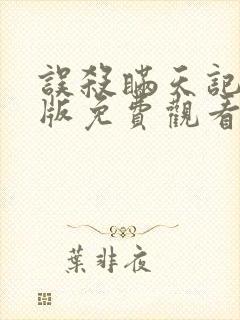 誤殺瞞天記
版免費觀看
葉非夜